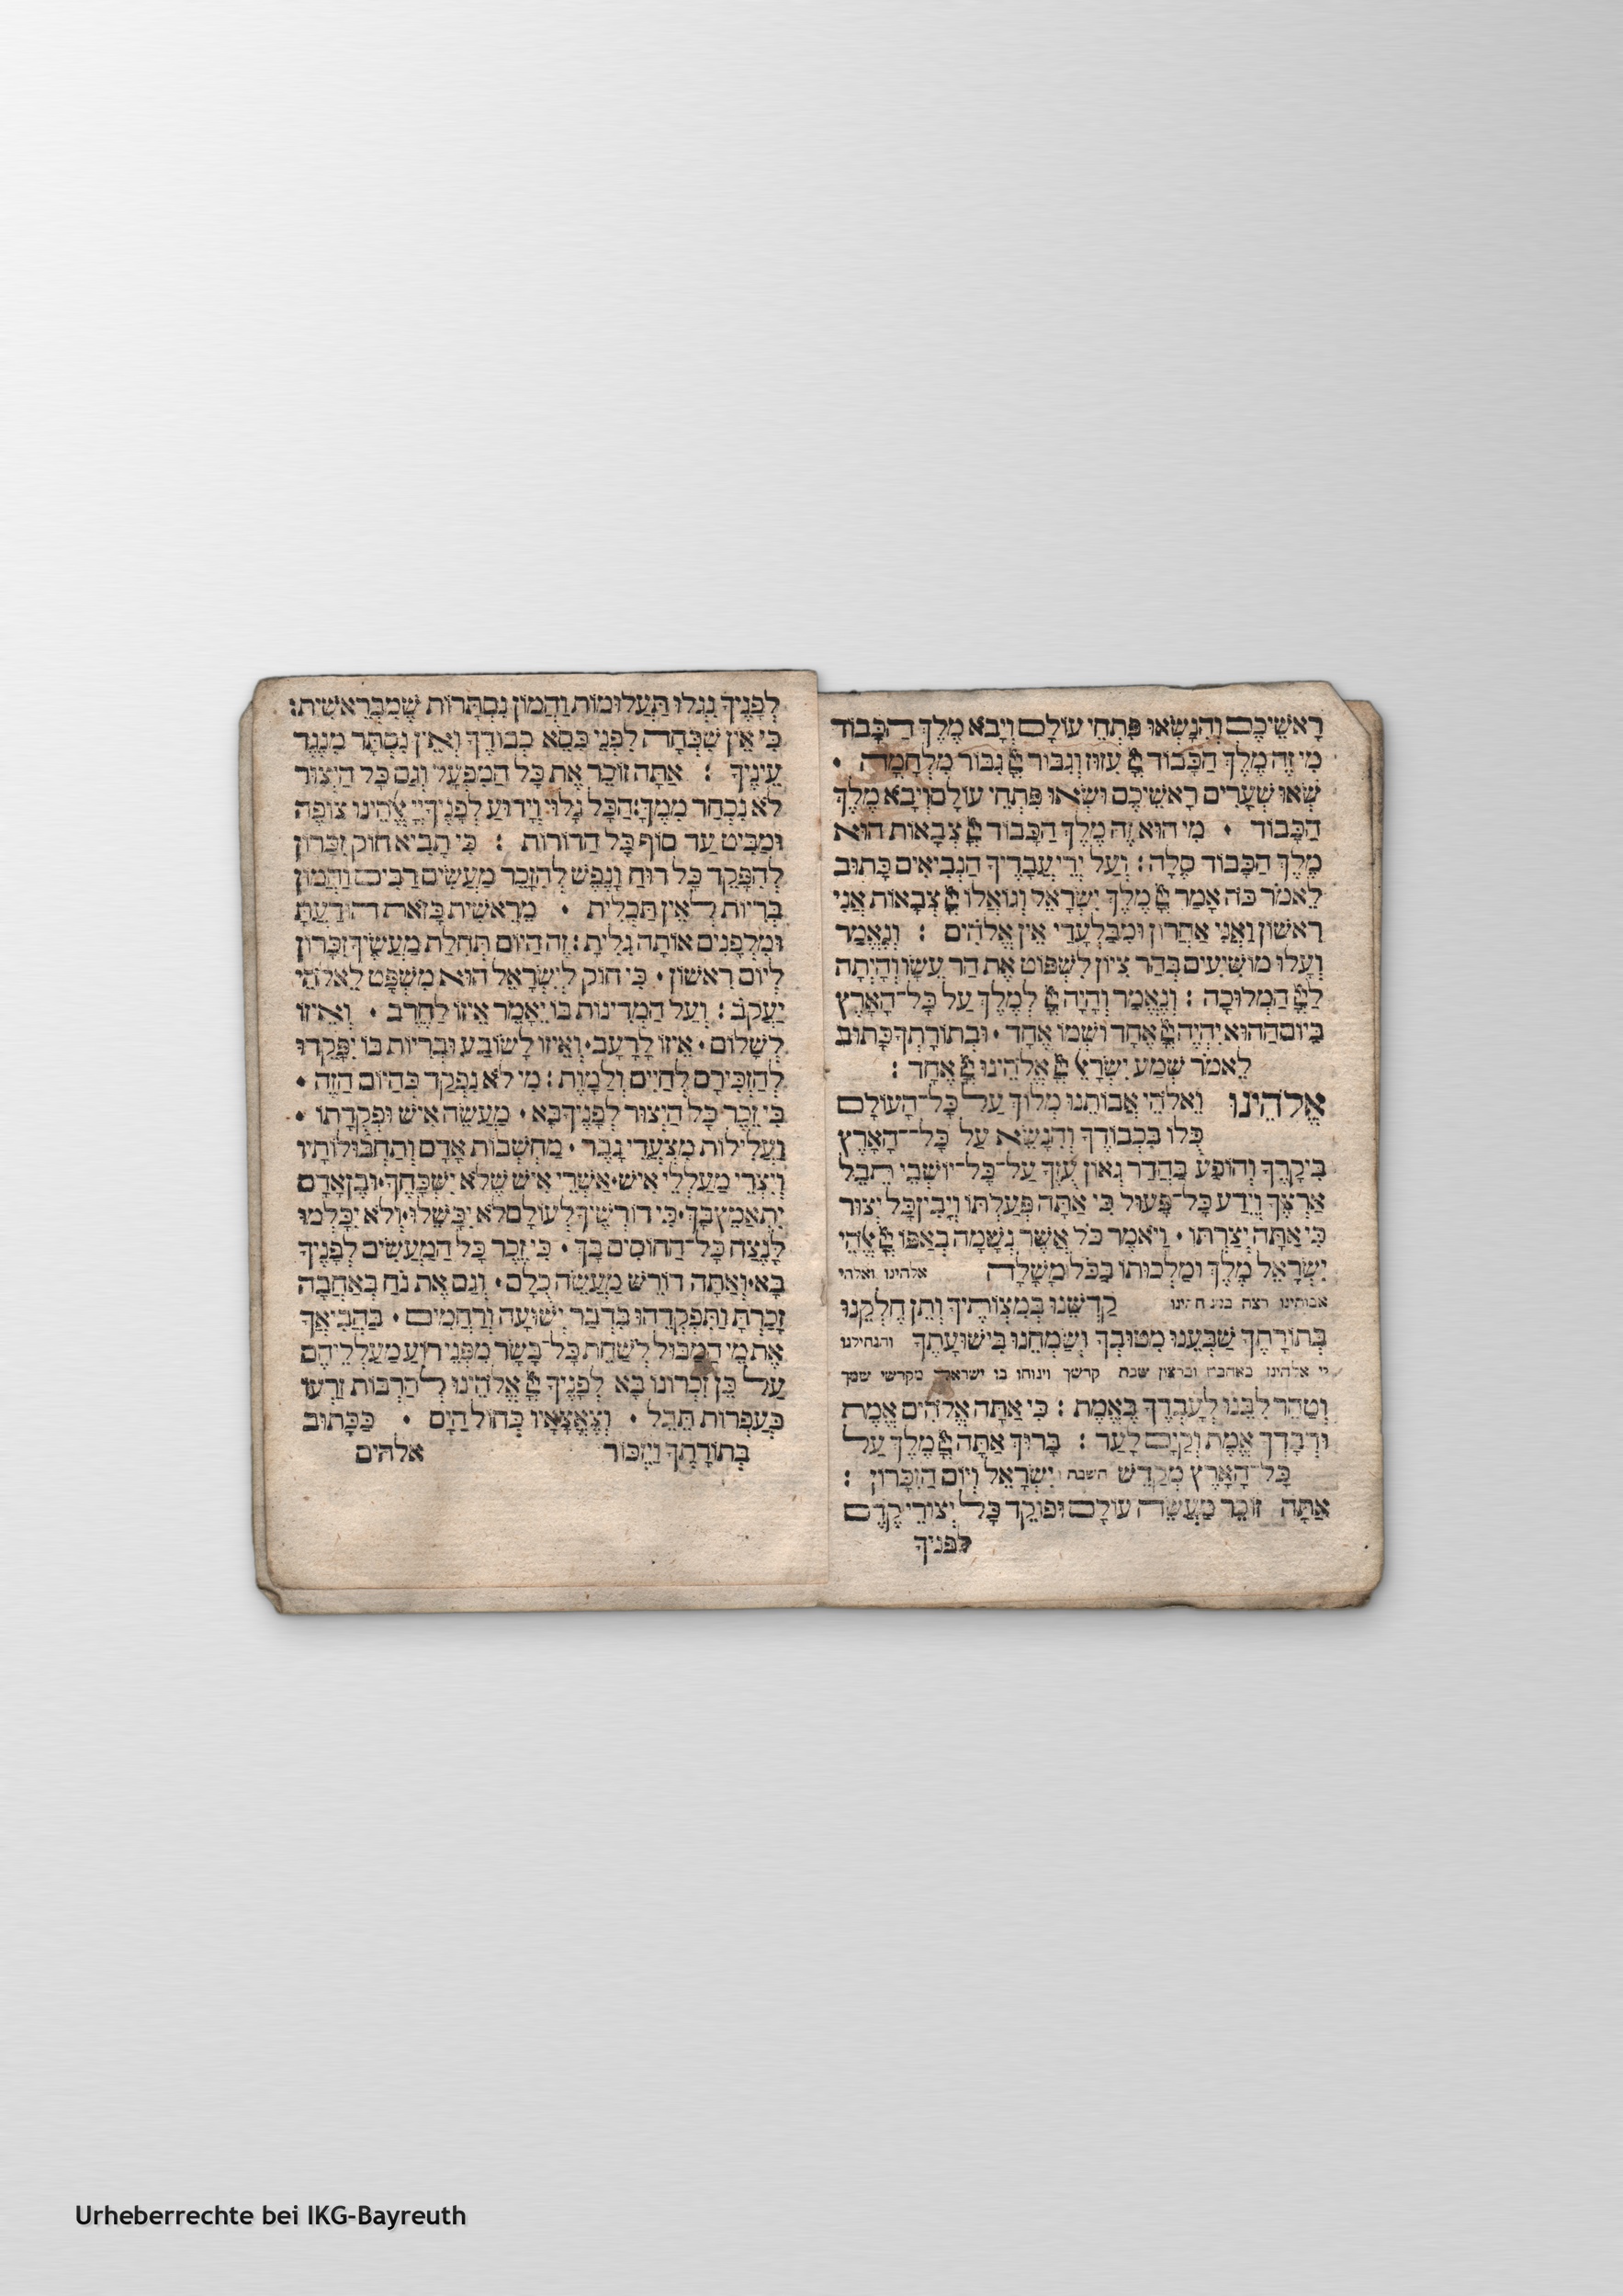 רָאשֵׁיכֶם וְהִנָּשְׂאוּ פִּתְחֵי עוֹלָם וְיָבֹא מֶלֶךְ הַכָּבוֹד
מִי זֶה מֶלֶךְ הַכָּבוֹד יְיָ עִזּוּז וְגִבּוֹר יְיָ גִּבּוֹר מִלְחָמָה ·
שְׂאוּ שְׁעָרִים רָאשֵׁיכֶם וּשְׂאוּ פִּתְחֵי עוֹלָם וְיָבֹא מֶלֶךְ
הַכָּבוֹד · מִי הוּא זֶה מֶלֶךְ הַכָּבוֹד יְיָ צְבָאוֹת הוּא
מֶלֶךְ הַכָּבוֹד סֶלָה : וְעַל יְדֵי עֲבָדֶיךָ הַנְּבִיאִים כָּתוּב
לֵאמֹר כֹּה אָמַר יְיָ מֶלֶךְ יִשְׂרָאֵל וְגוֹאֲלוֹ יְיָ צְבָאוֹת אֲנִי
רִאשׁוֹן וַאֲנִי אַחֲרוֹן וּמִבַּלְעָדַי אֵין אֱלֹהִים : וְנֶאֱמַר
וְעָלוּ מוֹשִׁיעִים בְּהַר צִיּוֹן לִשְׁפּוֹט אֶת הַר עֵשָׂו וְהָיְתָה
לַיְיָ הַמְּלוּכָה : וְנֶאֱמַר וְהָיָה יְיָ לְמֶלֶךְ עַל כָּל־הָאָרֶץ
בַּיּוֹם הַהוּא יִהְיֶה יְיָ אֶחָד וּשְׁמוֹ אֶחָד · וּבְתוֹרָתְךָ כָּתוּב
לֵאמֹר שְׁמַע יִשְׂרָאֵל יְיָ אֱלֹהֵינוּ יְיָ אֶחָד :
אֱלֹהֵינוּ וֵאלֹהֵי אֲבוֹתֵנוּ מְלוֹךְ עַל כָּל־הָעוֹלָם
כֻּלּוֹ בִּכְבוֹדֶךָ וְהִנָּשֵׂא עַל כָּל־הָאָרֶץ
בִּיקָרֶךָ וְהוֹפַע בַּהֲדַר גְּאוֹן עֻזֶּךָ עַל־כָּל־יוֹשְׁבֵי תֵבֵל
אַרְצֶךָ וְיֵדַע כָּל־פָּעוּל כִּי אַתָּה פְּעַלְתּוֹ וְיָבִין כָּל יְצוּר
כִּי אַתָּה יְצַרְתּוֹ · וְיֹאמַר כֹּל אֲשֶׁר נְשָׁמָה בְאַפּוֹ יְיָ אֱלֹהֵי
יִשְׂרָאֵל מֶלֶךְ וּמַלְכוּתוֹ בַּכֹּל מָשָׁלָה אלהינו ואלהי
אבותינו רצה במנוחתינו קַדְּשֵׁנוּ בְּמִצְוֹתֶיךָ וְתֵן חֶלְקֵנוּ
בְּתוֹרָתֶךָ שַׂבְּעֵנוּ מִטּוּבֶךָ וְשַׂמְּחֵנוּ בִּישׁוּעָתֶךָ והנחילנו
יי אלהינו באהבה וברצון שבת קדשך וינוחו בו ישראל מקדשי שמך
וְטַהֵר לִבֵּנוּ לְעָבְדְּךָ בֶּאֱמֶת : כִּי אַתָּה אֱלֹהִים אֱמֶת
וּדְבָרְךָ אֱמֶת וְקַיָּם לָעַד : בָּרוּךְ אַתָּה יְיָ מֶלֶךְ עַל
כָּל־הָאָרֶץ מְקַדֵּשׁ השבת ו יִשְׂרָאֵל וְיוֹם הַזִּכָּרוֹן :
אַתָּה זוֹכֵר מַעֲשֵׂה עוֹלָם וּפוֹקֵד כָּל יְצוּרֵי קֶדֶם
לפניך
לְפָנֶיךָ נִגְלוּ תַּעֲלוּמוֹת וַהֲמוֹן נִסְתָּרוֹת שֶׁמִּבְּרֵאשִׁית:
כִּי אֵין שִׁכְחָה לִפְנֵי כִּסֵּא כְבוֹדֶךָ וְאֵין נִסְתָּר מִנֶּגֶד
עֵינֶיךָ : אַתָּה זוֹכֵר אֶת כָּל הַמִּפְעָל וְגַם כָּל הַיְצוּר
לֹא נִכְחַד מִמֶּךָּ: הַכֹּל גָּלוּי וְיָדוּעַ לְפָנֶיךָ יְיָ אֱלֹהֵינוּ צוֹפֶה
וּמַבִּיט עַד סוֹף כָּל הַדּוֹרוֹת : כִּי תָבִיא חוֹק זִכָּרוֹן
לְהִפָּקֵד כָּל רוּחַ וָנֶפֶשׁ לְהִזָּכֵר מַעֲשִׂים רַבִּים וַהֲמוֹן
בְּרִיּוֹת לְאֵין תַּכְלִית · מֵרֵאשִׁית כָּזֹאת הוֹדַעְתָּ
וּמִלְּפָנִים אוֹתָהּ גִּלִּיתָ : זֶה הַיּוֹם תְּחִלַּת מַעֲשֶׂיךָ זִכָּרוֹן
לְיוֹם רִאשׁוֹן · כִּי חוֹק לְיִשְׂרָאֵל הוּא מִשְׁפָּט לֵאלֹהֵי
יַעֲקֹב : וְעַל הַמְּדִינוֹת בּוֹ יֵאָמֵר אֵיזוֹ לַחֶרֶב · וְאֵיזוֹ
לְשָׁלוֹם · אֵיזוֹ לָרָעָב · וְאֵיזוֹ לָשׂוֹבַע וּבְרִיּוֹת בּוֹ יִפָּקֵדוּ
לְהַזְכִּירָם לְחַיִּים וְלַמָּוֶת : מִי לֹא נִפְקַד כְּהַיּוֹם הַזֶּה ·
כִּי זֵכֶר כָּל הַיְצוּר לְפָנֶיךָ בָּא · מַעֲשֵׂה אִישׁ וּפְקֻדָּתוֹ ·
וַעֲלִילוֹת מִצְעֲדֵי גָבֶר · מַחְשְׁבוֹת אָדָם וְתַחְבּוּלוֹתָיו
וְיִצְרֵי מַעַלְלֵי אִישׁ · אַשְׁרֵי אִישׁ שֶׁלֹּא יִשְׁכָּחֶךָ · וּבֶן אָדָם
יִתְאַמֶּץ בָּךְ · כִּי דוֹרְשֶׁיךָ לְעוֹלָם לֹא יִכָּשֵׁלוּ · וְלֹא יִכָּלְמוּ
לָנֶצַח כָּל־הַחוֹסִים בָּךְ · כִּי זֵכֶר כָּל הַמַּעֲשִׂים לְפָנֶיךָ
בָּא · וְאַתָּה דוֹרֵשׁ מַעֲשֵׂה כֻלָּם · וְגַם אֶת נֹחַ בְּאַהֲבָה
זָכַרְתָּ וַתִּפְקְדֵהוּ בִּדְבַר יְשׁוּעָה וְרַחֲמִים · בַּהֲבִיאֲךָ
אֶת מֵי הַמַּבּוּל לְשַׁחֵת כָּל־בָּשָׂר מִפְּנֵי רוֹעַ מַעַלְלֵיהֶם
עַל כֵּן זִכְרוֹנוֹ בָּא לְפָנֶיךָ יְיָ אֱלֹהֵינוּ לְהַרְבּוֹת זַרְעוֹ
כְּעַפְרוֹת תֵּבֵל · וְצֶאֱצָאָיו כְּחוֹל הַיָּם · כַּכָּתוּב
בְּתוֹרָתֶךָ וַיִּזְכּוֹר אלהים
Urheberrechte bei IKG-Bayreuth